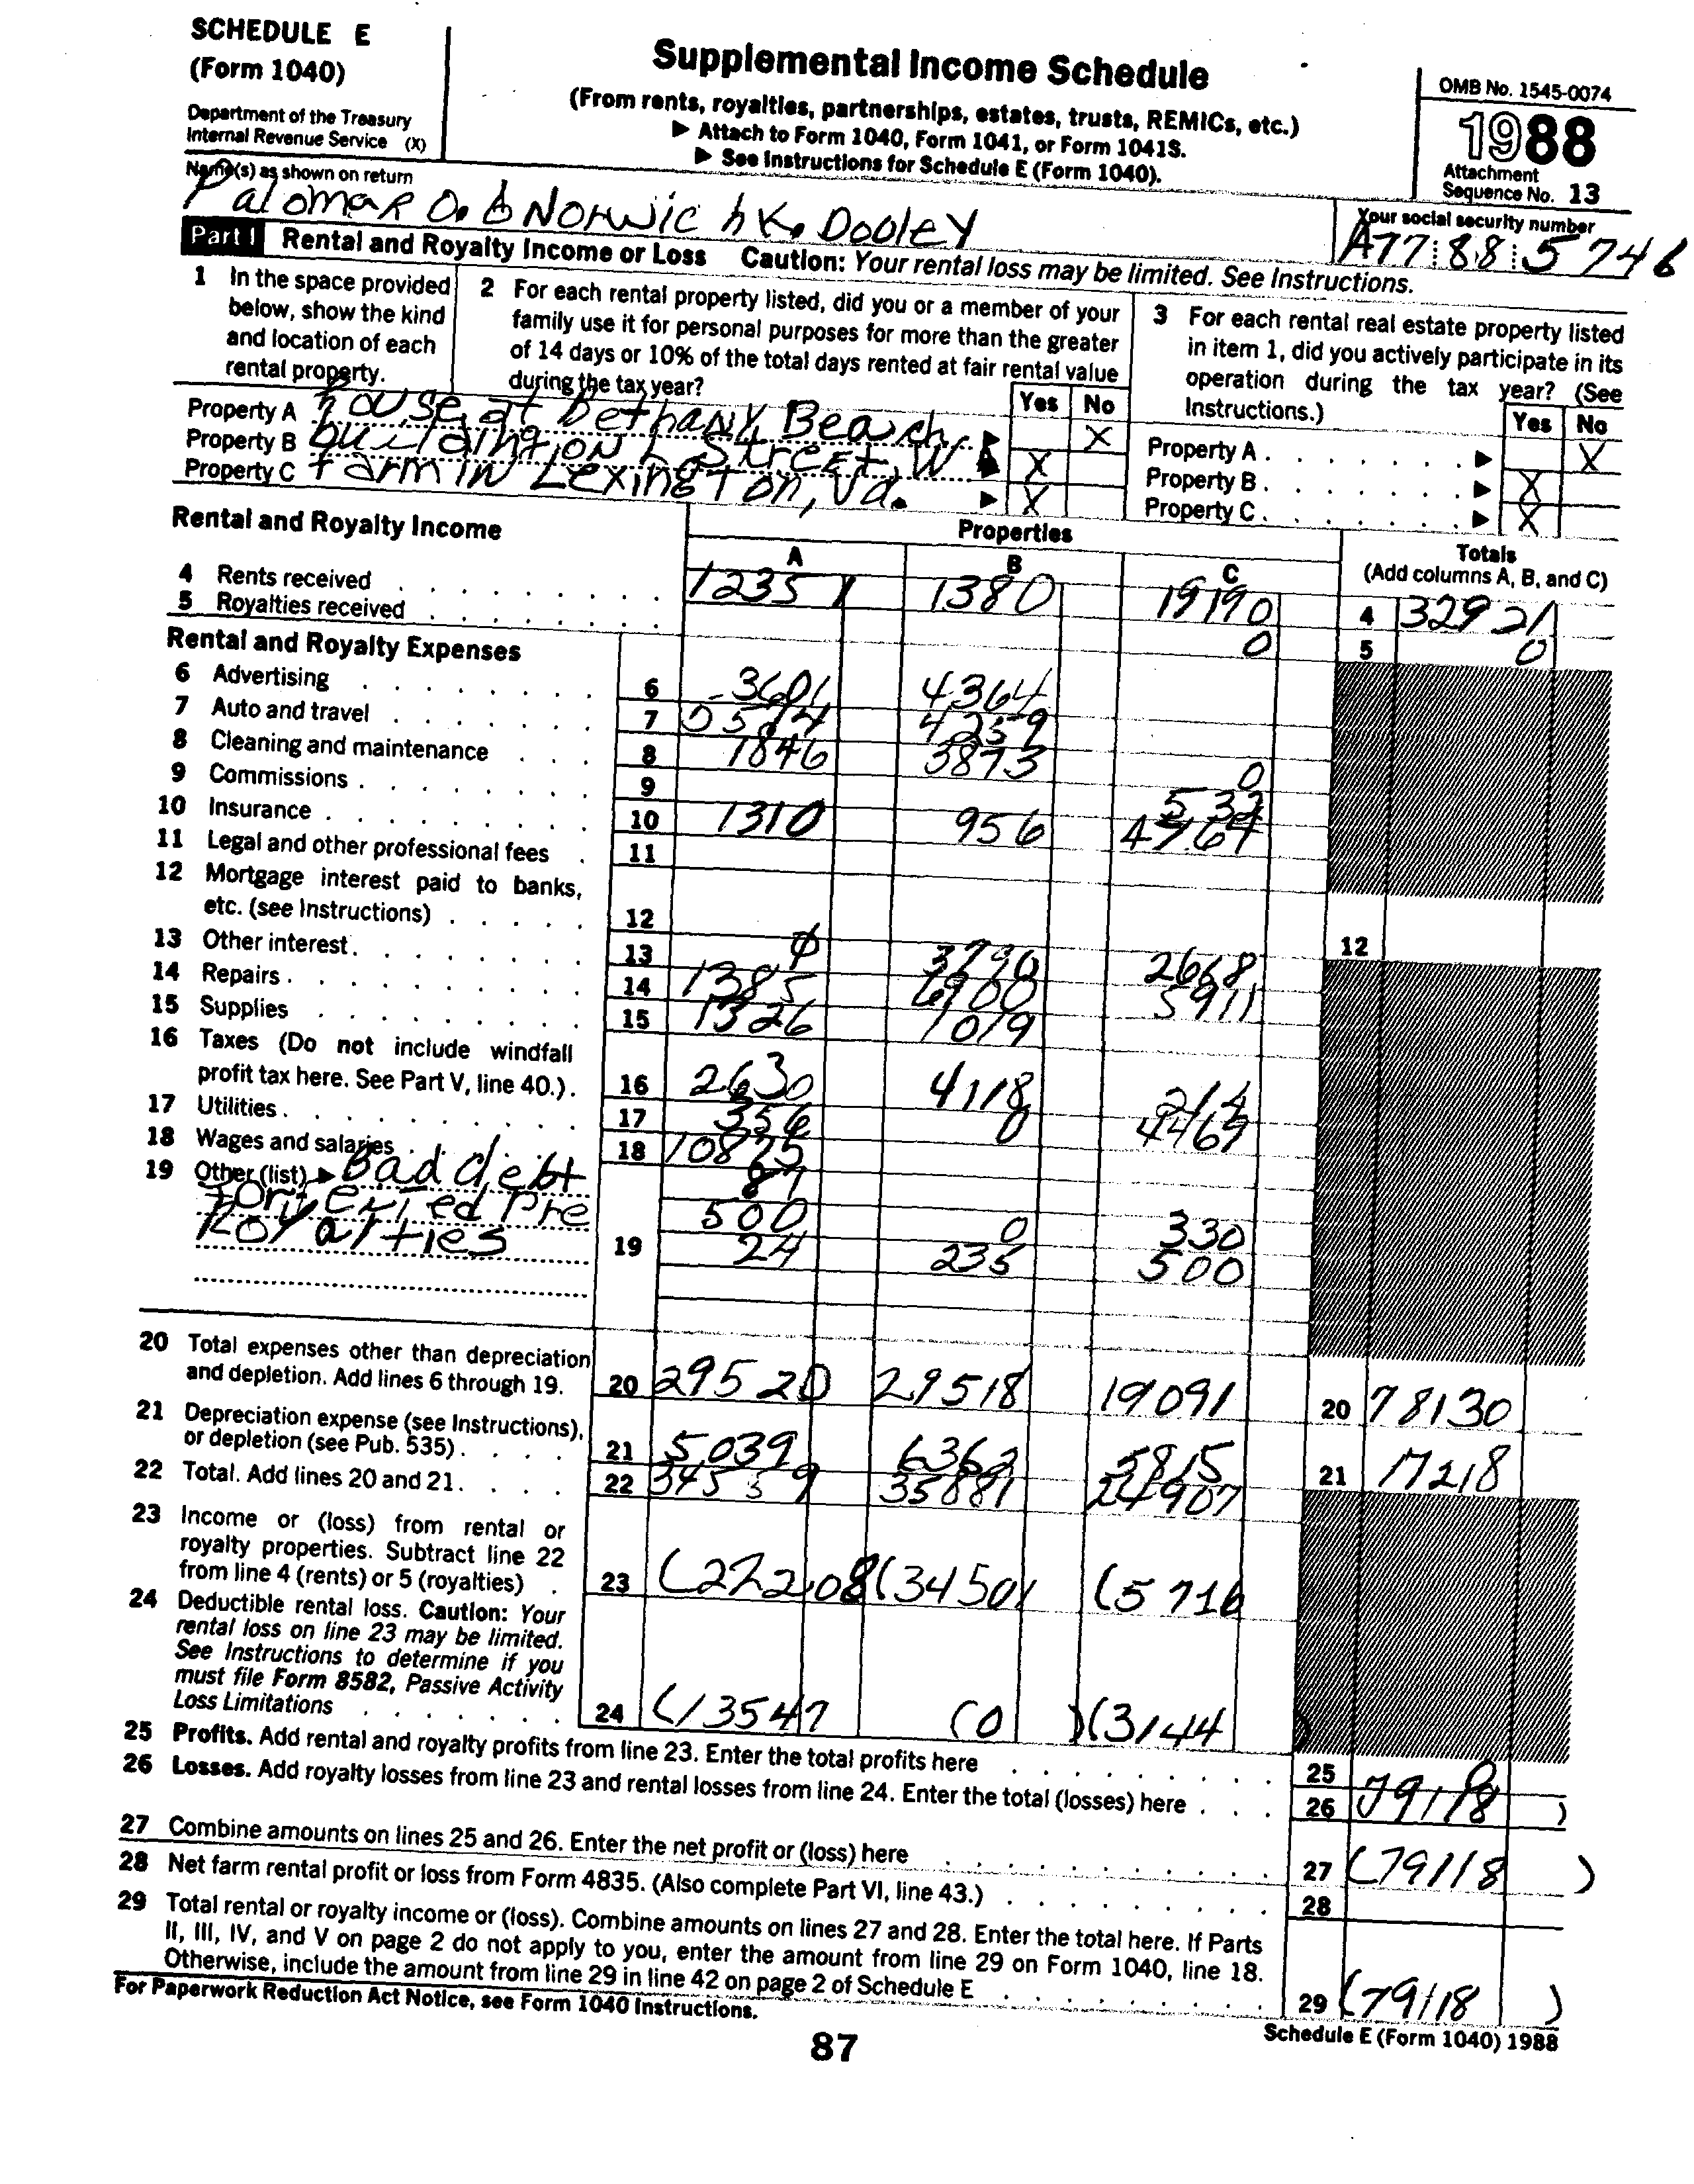 SCHEDULE E
(Form 1040)
Department of the Treasury
Internal Revenue Service (X)
Supplemental Income Schedule
(From rents, royalties, partnerships, estates, trusts, REMICs, etc.)
▶ Attach to Form 1040, Form 1041, or Form 1041S.
▶ See Instructions for Schedule E (Form 1040).
OMB No. 1545-0074
1988
Attachment
Sequence No. 13
Name(s) as shown on return
Palomar O. & Norwich K. Dooley
Your social security number
A77 88 5746
Part I Rental and Royalty Income or Loss Caution: Your rental loss may be limited. See Instructions.
1 In the space provided
below, show the kind
and location of each
rental property.
2 For each rental property listed, did you or a member of your
family use it for personal purposes for more than the greater
of 14 days or 10% of the total days rented at fair rental value
during the tax year?
Yes No
3 For each rental real estate property listed
in item 1, did you actively participate in its
operation during the tax year? (See
Instructions.)
Yes No
Property A house at Bethany Beach, ▶ X
Property B building on L Street, W ▶ X
Property C farm in Lexington, Va. ▶ X
Property A . . . . . . . ▶ X
Property B . . . . . . . ▶ X
Property C . . . . . . . ▶ X
Rental and Royalty Income
Properties
A B C
Totals
(Add columns A, B, and C)
4 Rents received 12351 1380 19190 4 32921
5 Royalties received 0 5 0
Rental and Royalty Expenses
6 Advertising 6 3601 4364
7 Auto and travel 7 4259
8 Cleaning and maintenance 8 1846 3873 0
9 Commissions 9 532
10 Insurance 10 1310 956
11 Legal and other professional fees 11
12 Mortgage interest paid to banks,
etc. (see Instructions) 12 12
13 Other interest 13 2668
14 Repairs 14 1385 6900 5911
15 Supplies 15 1326 1019
16 Taxes (Do not include windfall
profit tax here. See Part V, line 40.) 16 2630 4118 214
17 Utilities 17 356 0
18 Wages and salaries 18 10875
19 Other (list) ▶ Bad debt 87
Pre
Royalties 500 0 330
19 24 235 500
20 Total expenses other than depreciation
and depletion. Add lines 6 through 19. 20 29520 29518 19091 20 78130
21 Depreciation expense (see Instructions),
or depletion (see Pub. 535) 21 5039 6362 5815 21 17218
22 Total. Add lines 20 and 21. 22 34559 35881 24907
23 Income or (loss) from rental or
royalty properties. Subtract line 22
from line 4 (rents) or 5 (royalties) 23 (22208 (34501 (5716
24 Deductible rental loss. Caution: Your
rental loss on line 23 may be limited.
See Instructions to determine if you
must file Form 8582, Passive Activity
Loss Limitations 24 (13547 (0 )(3144 )
25 Profits. Add rental and royalty profits from line 23. Enter the total profits here 25 0
26 Losses. Add royalty losses from line 23 and rental losses from line 24. Enter the total (losses) here 26 79118 )
27 Combine amounts on lines 25 and 26. Enter the net profit or (loss) here 27 (79118 )
28 Net farm rental profit or loss from Form 4835. (Also complete Part VI, line 43.) 28
29 Total rental or royalty income or (loss). Combine amounts on lines 27 and 28. Enter the total here. If Parts
II, III, IV, and V on page 2 do not apply to you, enter the amount from line 29 on Form 1040, line 18.
Otherwise, include the amount from line 29 in line 42 on page 2 of Schedule E 29 (79118 )
For Paperwork Reduction Act Notice, see Form 1040 Instructions.
Schedule E (Form 1040) 1988
87